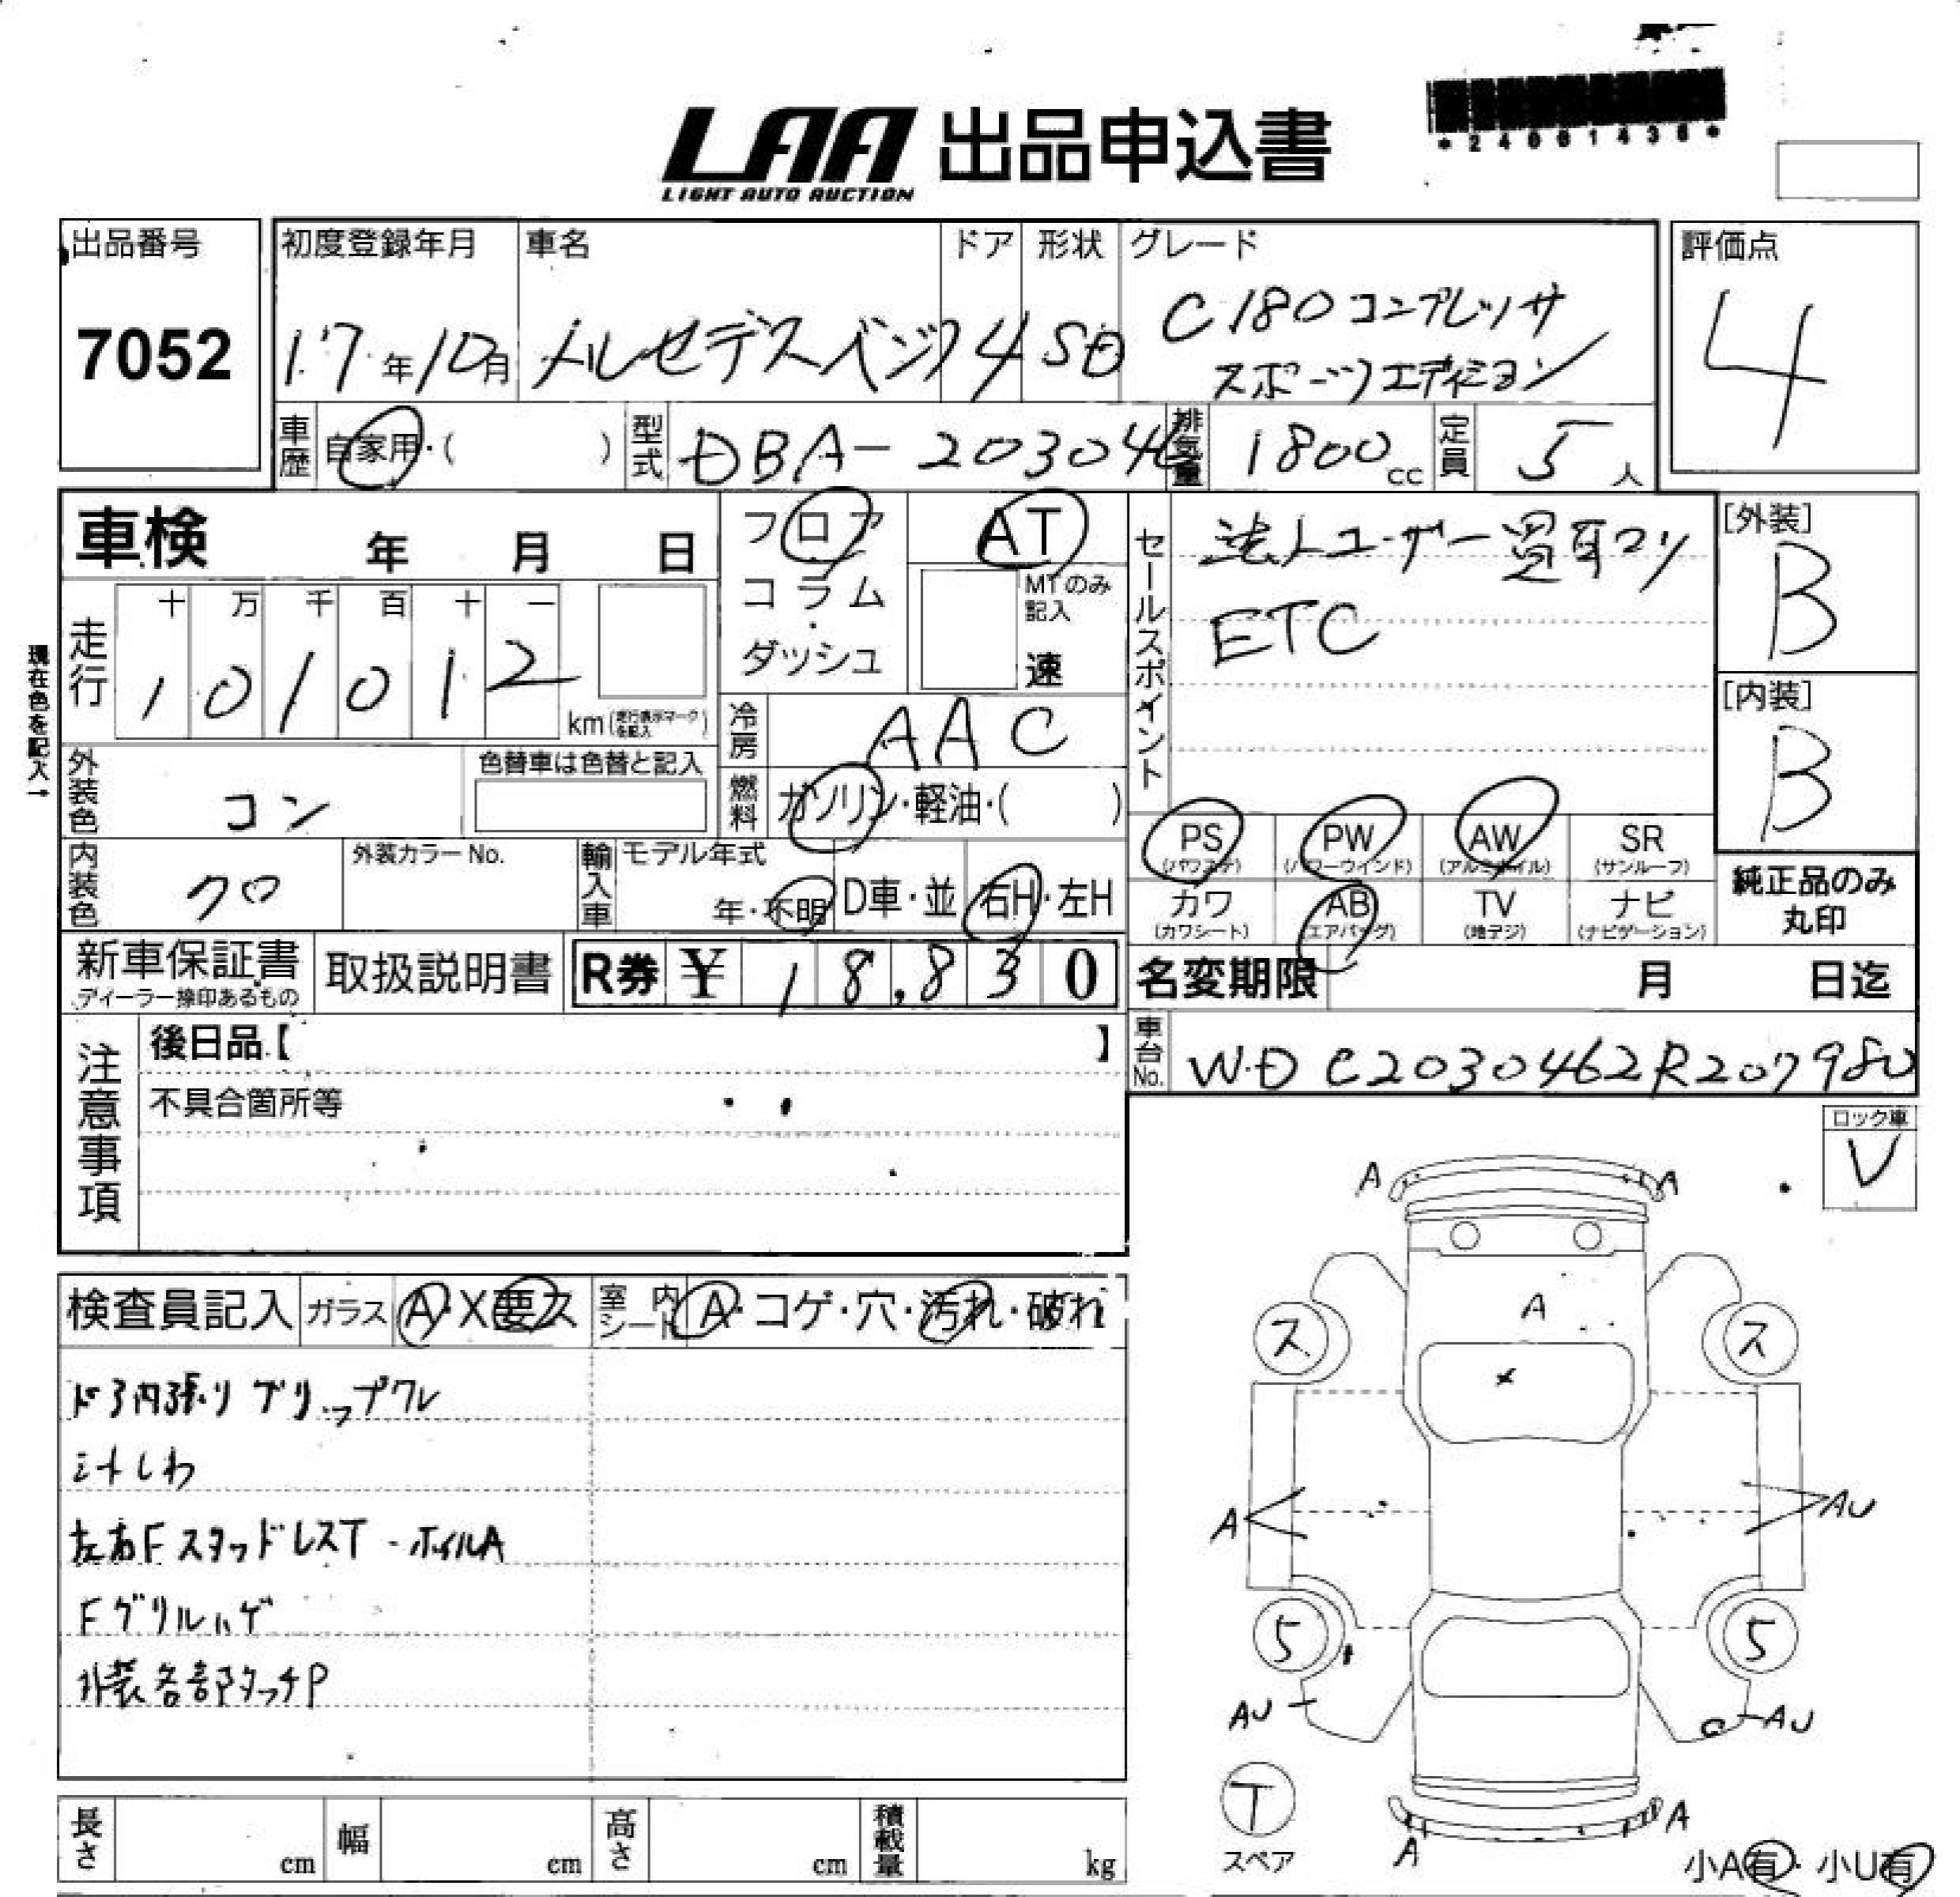 LAA 出品申込書
LIGHT AUTO AUCTION
*24001436*
出品番号
7052
初度登録年月
17年10月
車名
メルセデスベンツ
ドア
4
形状
SD
グレード
C180コンプレッサ
スポーツエディション
評価点
4
車歴
自家用・( )
型式
DBA-203046
排気量
1800cc
定員
5人
車検 年 月 日
フロア
コラム
・
ダッシュ
AT
MTのみ
記入
速
セールスポイント
法人ユーザー買取マツ
ETC
[外装]
B
[内装]
B
現在色を記入→
走行
十 万 千 百 十 一
1 0 1 0 1 2
km(走行表示マークを記入)
冷房
AAC
燃料
ガソリン・軽油・( )
外装色
コン
色替車は色替と記入
内装色
クロ
外装カラーNo.
輸入車
モデル年式
年・不明
D車・並
右H・左H
PS
(パワステ)
PW
(パワーウインド)
AW
(アルミホイル)
SR
(サンルーフ)
カワ
(カワシート)
AB
(エアバッグ)
TV
(地デジ)
ナビ
(ナビゲーション)
純正品のみ
丸印
新車保証書
ディーラー捺印あるもの
取扱説明書
R券 ¥ 18,830
名変期限 月 日迄
車台No.
WDC2030462R207980
注意事項
後日品【 】
不具合箇所等
ロック車
V
検査員記入
ガラス
A・X要ス
室内シート
A・コゲ・穴・汚れ・破れ
ドア内張りグリップワレ
シートしわ
左右FスタッドレスT・ホイルA
Fグリルハゲ
外装各部タッチP
A A
A
ス ス
×
A AU
5 5
AU AU
T
スペア
A
A
小A有・小U有
長さ cm
幅 cm
高さ cm
積載量 kg